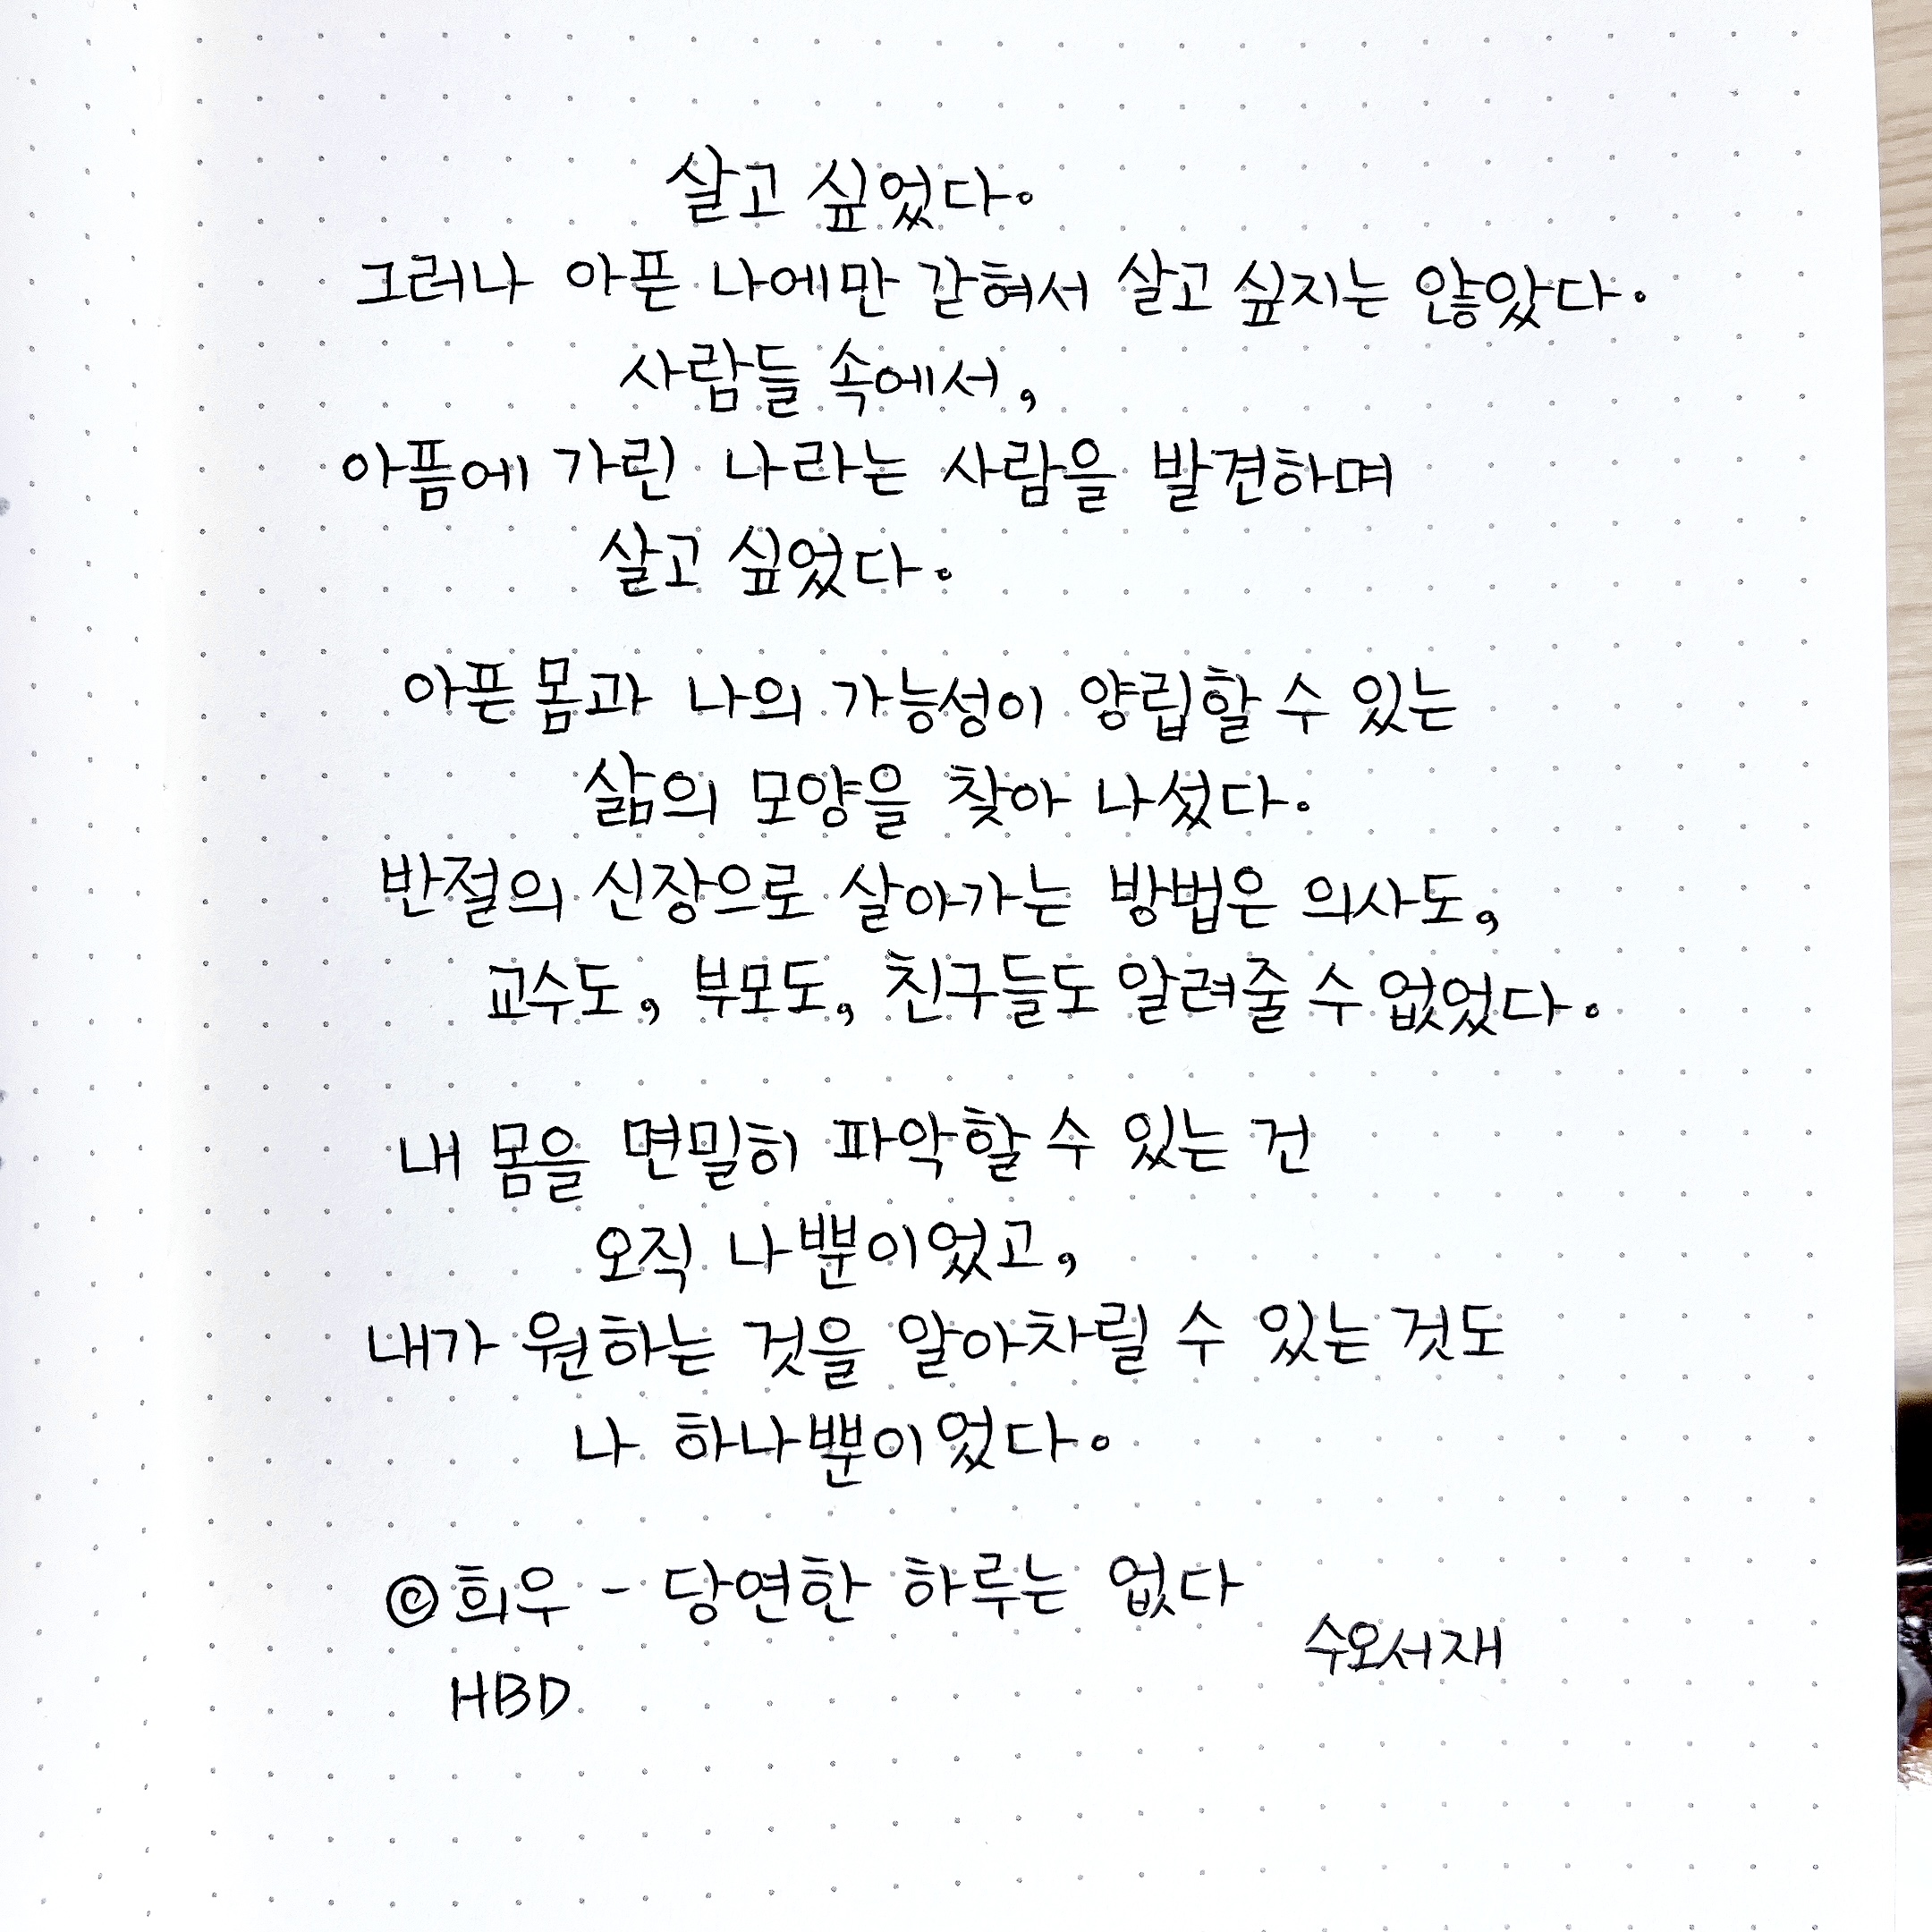 살고 싶었다.
그러나 아픈 나에만 갇혀서 살고 싶지는 않았다.
사람들 속에서,
아픔에 가린 나라는 사람을 발견하며
살고 싶었다.
아픈 몸과 나의 가능성이 양립할 수 있는
삶의 모양을 찾아 나섰다.
반절의 신장으로 살아가는 방법은 의사도,
교수도, 부모도, 친구들도 알려줄 수 없었다.
내 몸을 면밀히 파악할 수 있는 건
오직 나뿐이었고,
내가 원하는 것을 알아차릴 수 있는 것도
나 하나뿐이었다.
©희우 - 당연한 하루는 없다
수오서재
HBD